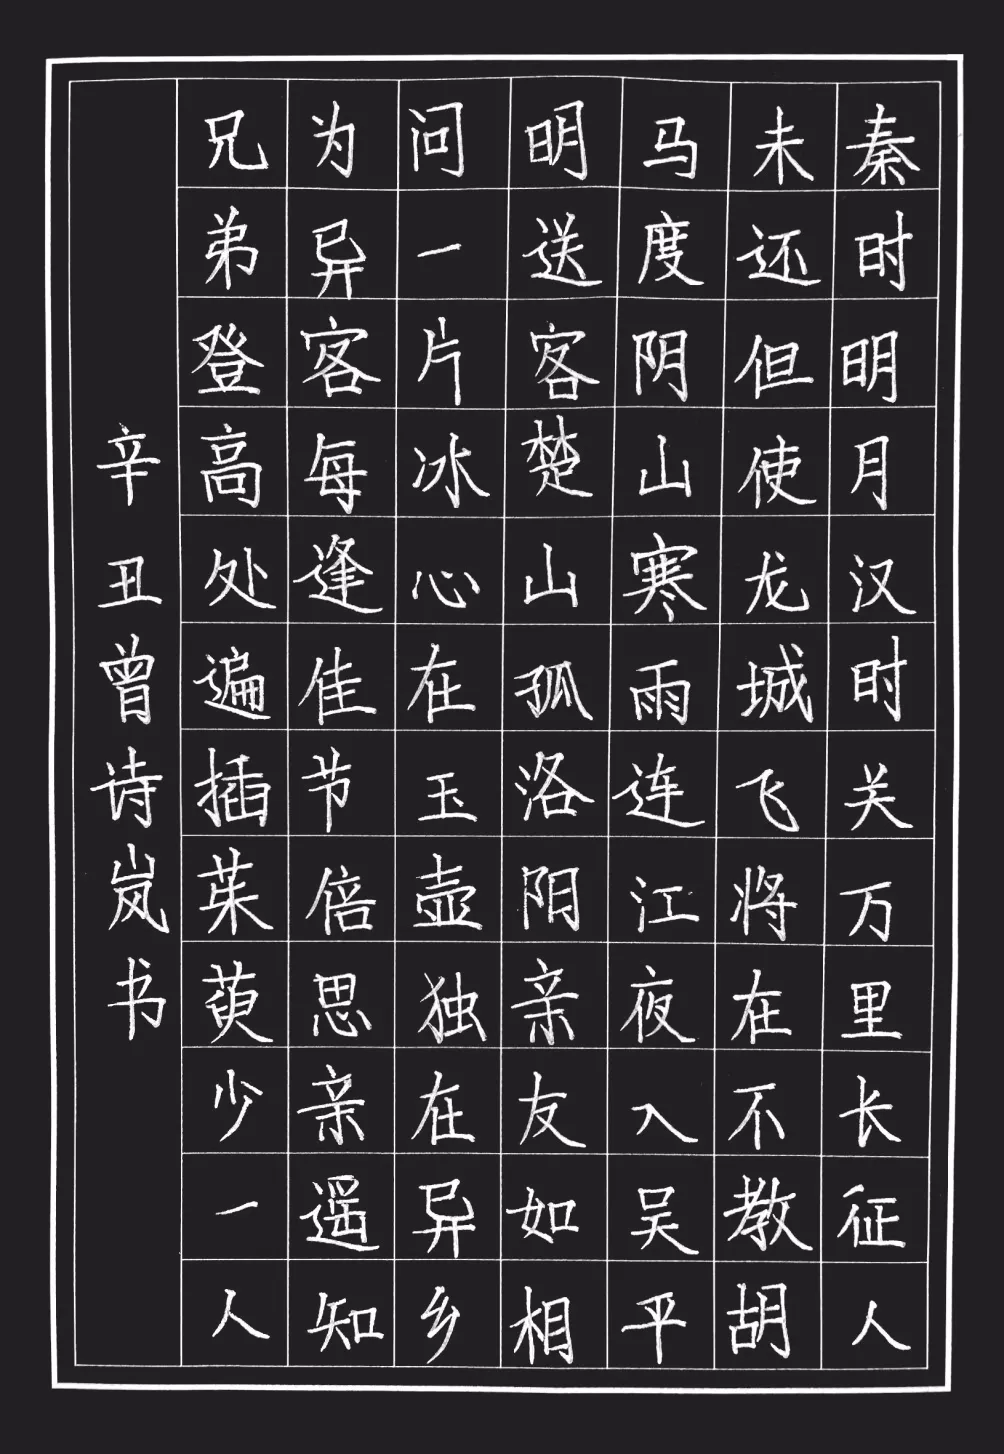 秦时明月汉时关万里长征人
未还但使龙城飞将在不教胡
马度阴山寒雨连江夜入吴平
明送客楚山孤洛阳亲友如相
问一片冰心在玉壶独在异乡
为异客每逢佳节倍思亲遥知
兄弟登高处遍插茱萸少一人
辛丑曾诗岚书